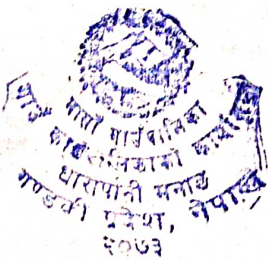 नासों गाउँपालिका
गाउँ कार्यपालिकाको कार्यालय
धारापानी मनाङ
गण्डकी प्रदेश, नेपाल
२०७३